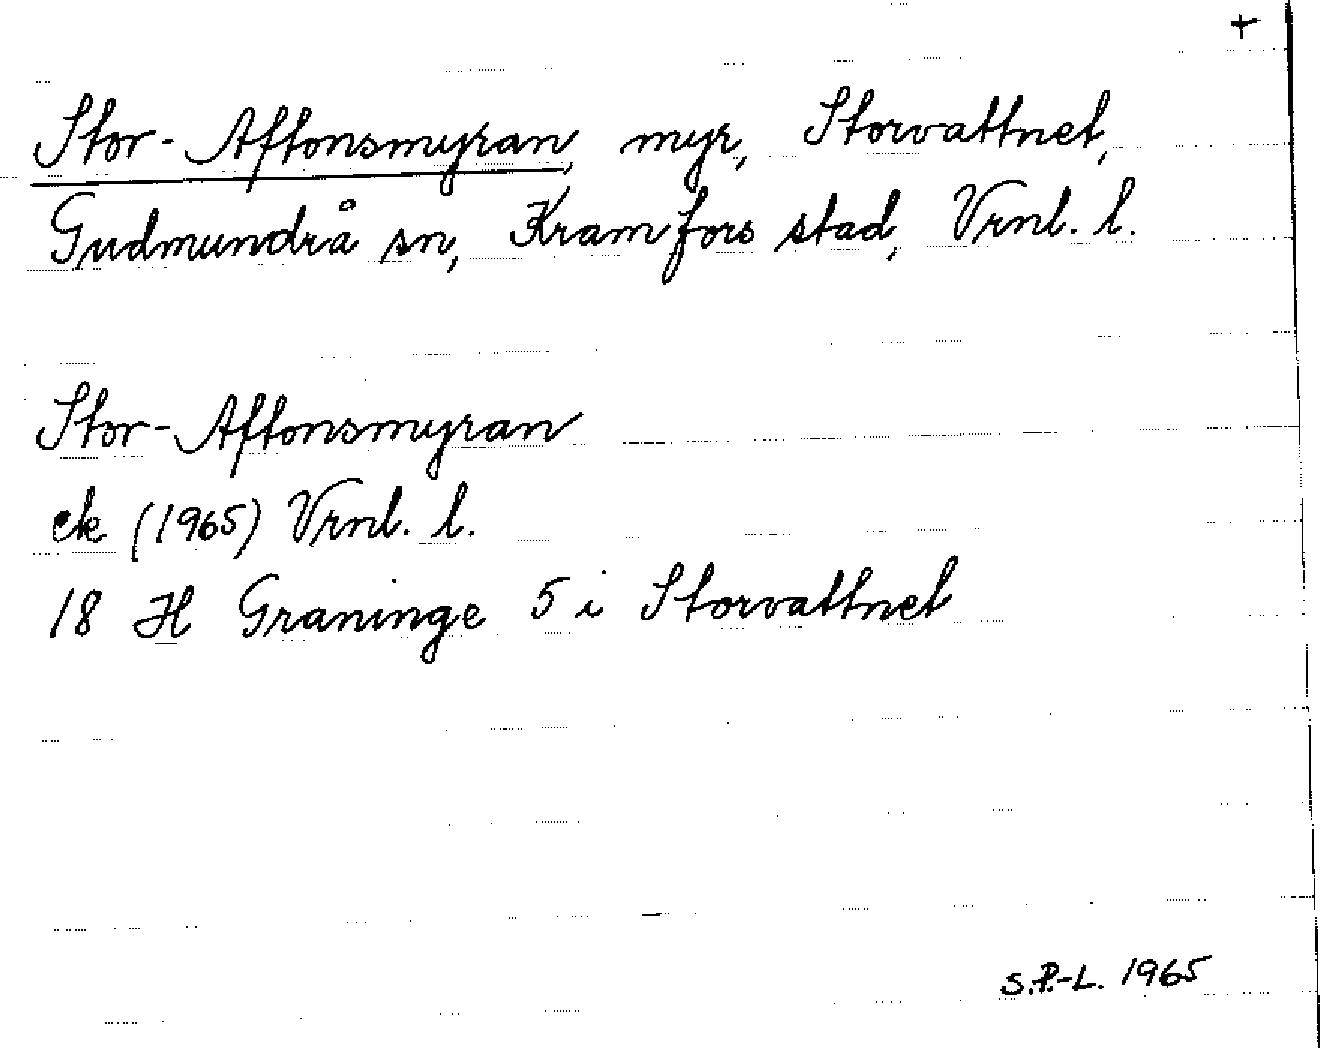 +
Stor-Aftonsmyran, myr, Storvattnet,
Gudmundrå sn, Kramfors stad, Vrnl. l.
Stor-Aftonsmyran
ek (1965) Vrnl. l.
18 H Graninge 5 i Storvattnet
S.P.-L. 1965